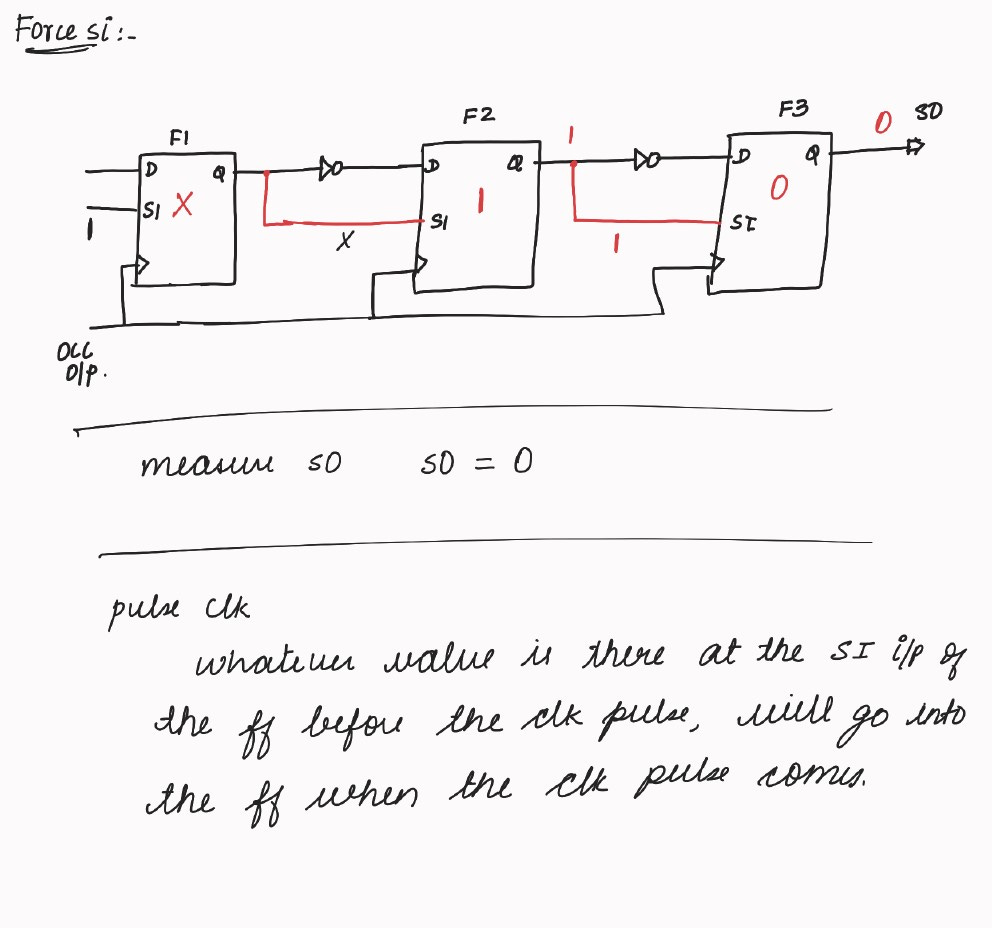 Force si :-
F1 F2 F3 0 SO
D Q D Q 1 D Q
SI X SI 1 SI 0
1 X 1
OCC
O/P.
measure SO SO = 0
pulse clk
whatever value is there at the SI i/p of
the ff before the clk pulse, will go into
the ff when the clk pulse comes.